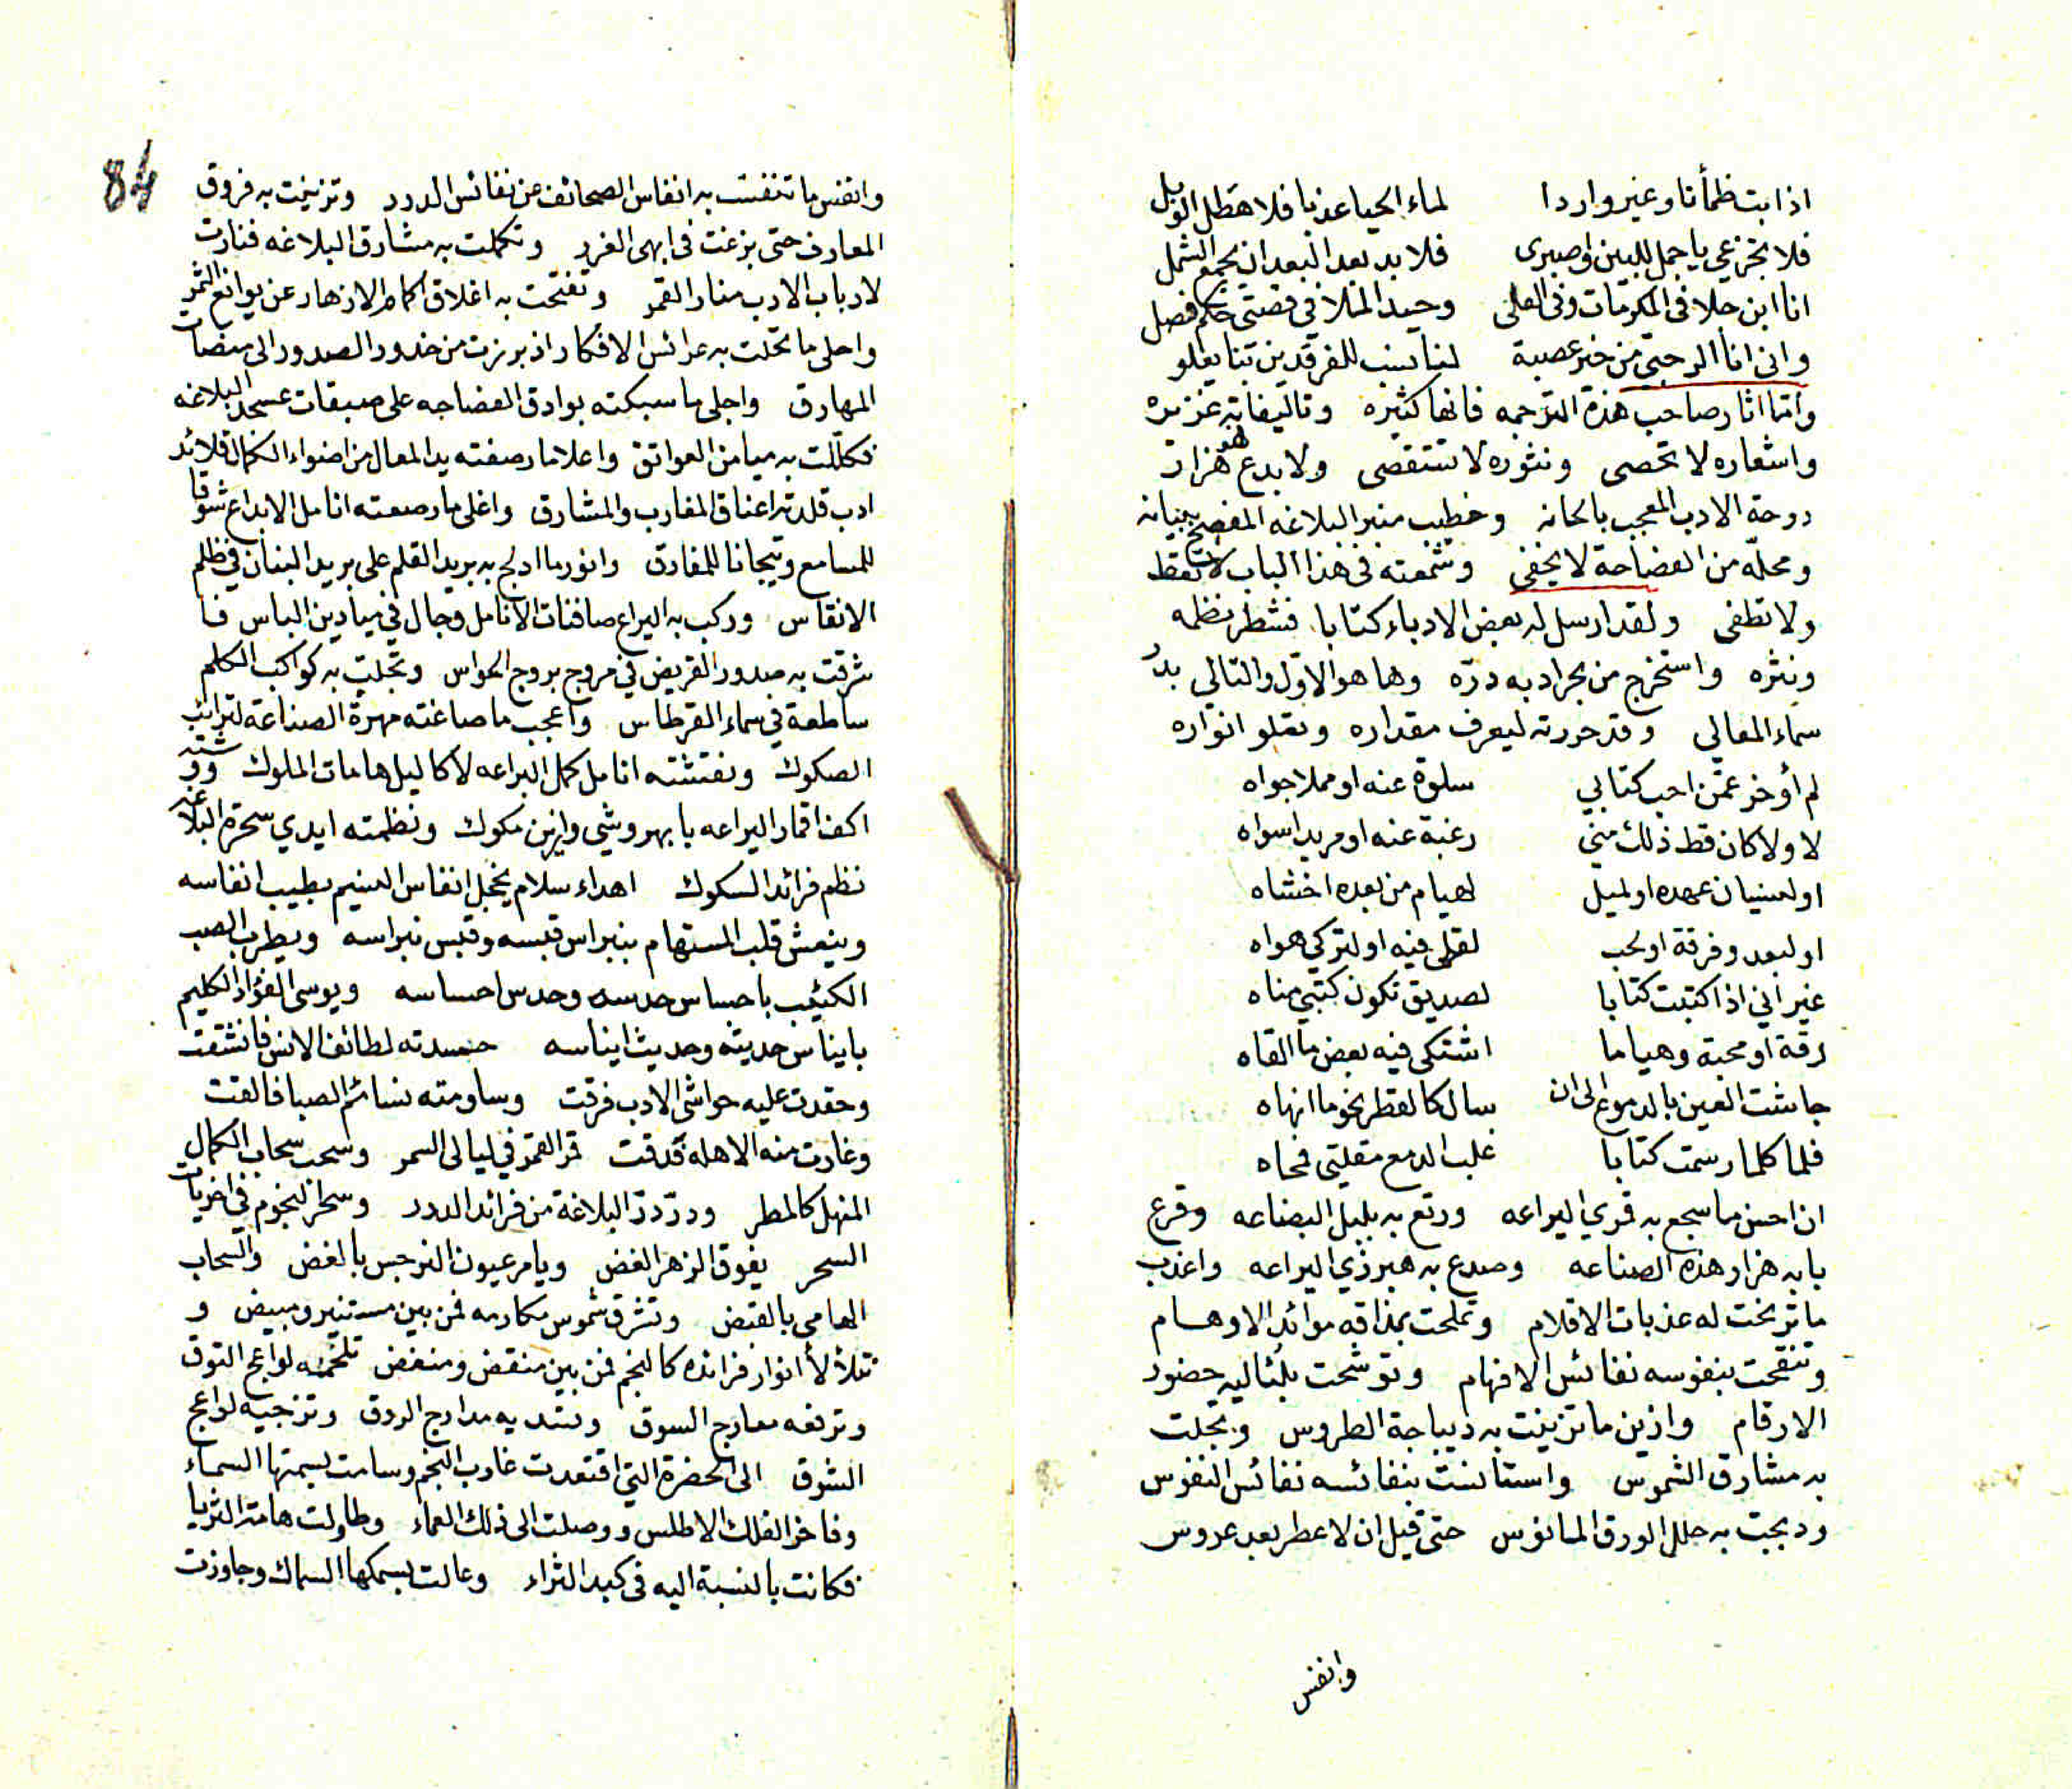 اذا بت ظمأنا وغير واردا لماء الحيا عذبا فلا هطل الوبل
فلا تجزعي يا جمل للبين واصبرى فلا بد بعد البعد ان يجمع الشمل
انا ابن جلا فى المكرمات وفى العلى وحيد الملا فى قصتى حكم فصل
وانى انا الرحبيّ من خير عصبة لنا نسب للفرقدين بنا يعلو
وامّا اثار صاحب هذة الترجمه فانها كثيره وتاليفاته غزيره
واشعاره لا تحصى ونثوره لا تستقصى ولا بدع هو هزار
دوحة الادب المعجب بالحانه وخطيب منبر البلاغه المفصح ببيانه
ومحلّه من الفصاحة لا يخفى وشمعته فى هذا الباب لا تقط
ولا تطفى ولقد ارسل له بعض الادباء كتابا فشطر نظمه
ونثره واستخرج من بحر ادبه درّه وها هو الاوّل والتالي بدر
سماء المعالي وقد حررته ليعرف مقداره وتعلو انواره
لم أوخر عمّن احب كتابي سلوة عنه او مملا جواه
لا ولا كان قط ذلك منّي رغبة عنه او مريدا سواه
او لنسيان عهده او لميل لهيام من بعده اخشاه
او لبعد وفرقة او لحب لقلى فيه او لتركي هواه
غير اني اذا كتبت كتابا لصديق تكون كتبي مناه
رقة او محبة وهياما اشتكى فيه بعض ما القاه
جاشت العين بالدموع الى ان سال كالقطر نحو ما انهاه
فلما كلما رسمت كتابا غلب الدمع مقلتى فمحاه
ان احسن ما سجع به قمري اليراعه ورتع به بلبل البضاعه وقرع
بابه هزار هذه الصناعه وصدع به هبرذي اليراعه واعذب
ما ترنحت له عذبات الاقلام وتملحت بمذاقه موائد الاوهام
وتنقحت بنفوسه نفائس الافهام وتوشحت بلئاليه حضور
الارقام وازين ما تزينت به ديباجة الطروس وتجلت
به مشارق الشموس واستانست بنفائسه نفائس النفوس
ودبجت به حلل الورق المانوس حتى قيل ان لا عطر بعد عروس
وانفس
84
وانفس ما تنفست به انفاس الصحائف عن نفائس الدرر وتزينت به فروق
المعارف حتى بزغت فى ابهى الغرر وتكملت به مشارق البلاغه فنارت
لارباب الادب منار القمر وتفتحت به اغلاق اكمام الازهار عن يوانع الثمر
واحلى ما تحلت به عرائس الافكار اذ برزت من خدور الصدور الى منصات
المهارق واجلى ما سبكته بوادق الفصاحه على صبقات عسجد البلاغه
فكلّلت به ميامن العواتق واعلا ما رصفته يد المعال من اضواء الكمال قلائد
ادب قلدته اعناق المغارب والمشارق واغلى ما رصعته انامل الابداع شنوفا
للمسامع وتيجانا للمفارق وانور ما ادلج به بريد القلم على بريد البنان في ظلم
الانقاس وركب به اليراع صافنات الانامل وجال في ميادين الباس فا
شرقت به صدور القريض في مروج بروج الحواس وتجلت به كواكب الكلم
ساطعة في سماء القرطاس واعجب ما صاغته مهرة الصناعة لترائب
الصكوك ونفتشته انامل كمل البراعه لاكاليل هامات الملوك ووشته
اكف اقمار اليراعه با بهر وشي وازين مكوك ونظمته ايدي سحرة البلاغه
نظم فرائد السكوك اهداء سلام يخجل انفاس النسيم بطيب انفاسه
وينعش قلب المستهام بنبراس قبسه وقبس نبراسه ويطرب الصب
الكئيب باحساس حدسه وحدس احساسه ويوسى الفؤاد الكليم
بايناس حديثه وحديث ايناسه حسدته لطائف الانس فانشقت
وحقدت عليه حواشى الادب فرقت وساومته نسائم الصبا فالقت
وغارت منه الاهله فدقت قمر القمر في ليالى السمر وسحب سحاب الكمال
المنهل كالمطر ودرّ درّ البلاغة من فرائد الدرر وسحر النجوم فى اخريات
السحر يفوق الزهر الغض ويامر عيون النرجس بالغض والسحاب
الهامى بالقبض وتشرق شموس مكارمه فمن بين مستنير ومبيض و
تتلألأ انوار فرائده كالنجم فمن بين منقض ومنغض تلحمه لواعج التوق
وترفعه معارج السوق وتسديه مدارج الروق وتزجيه لواعج
الشوق الى الحضرة التي اقتعدت غارب النجم وسامت بسمتها السماء
وفاخر الفلك الاطلس ووصلت الى ذلك العماء وطاولت هامة الثريا
فكانت بالنسبة اليه فى كبد الثراء وعالت بسمكها السماك وجاوزت